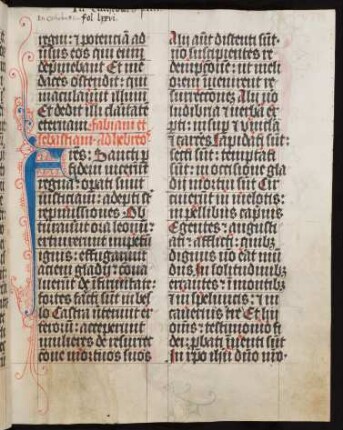 fol lxxvi.
regni: et potenciam ad
uersus eos qui eum
deprimebant Et men
daces ostendit: qui
maculauerunt illum
Et dedit illi claritatem
eternam. Fabiani et
sebastiani. ad hebreos
Fratres: Sancti per
fidem uicerunt
regna: operati sunt
iusticiam: adepti sunt
repromissiones. Ob
turauerunt ora leonum:
extinxerunt impetum
ignis: effugarunt
aciem gladij: conua
luerunt de infirmitate:
fortes facti sunt in bel
lo Castra uerterunt ex
terorum: acceperunt
mulieres de resurrec
tione mortuos suos
Alij autem distenti sunt
non suscipientes re
dempcionem: ut meli
orem inuenirent re
surrectionem. Alij uero
ludibria et uerbera ex
perti: insuper et vincula
et carceres lapidati sunt:
secti sunt: temptati
sunt: in occisione gla
dij mortui sunt Cir
cuierunt in melotis:
in pellibus caprinis
Egentes: angusti
ati: afflicti: quibus
dignus non erat mun
dus. In solitudinibus
errantes: in montibus
et in speluncis: et in
cauernis terre Et hij
omnes: testimonio fi
dei: probati inuenti sunt
in christo ihesu domino nostro.